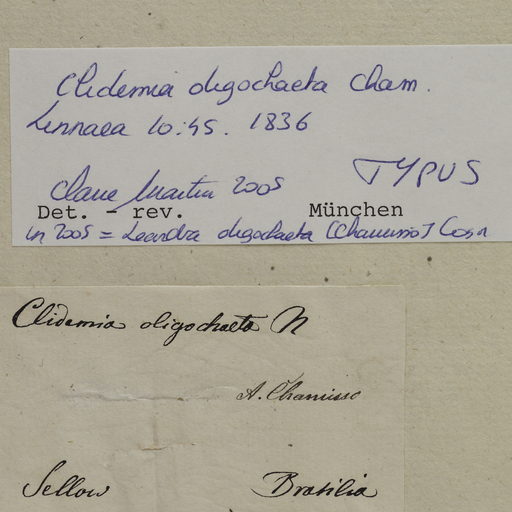 Clidemia oligochaeta Cham.
Linnaea 10:45. 1836
TYPUS
Claire Martin 2005
Det. - rev. München
in 2005 = Leandra oligochaeta (Chamisso) Cogn
Clidemia oligochaeta N
A. Chamisso
Sellow Brasilia